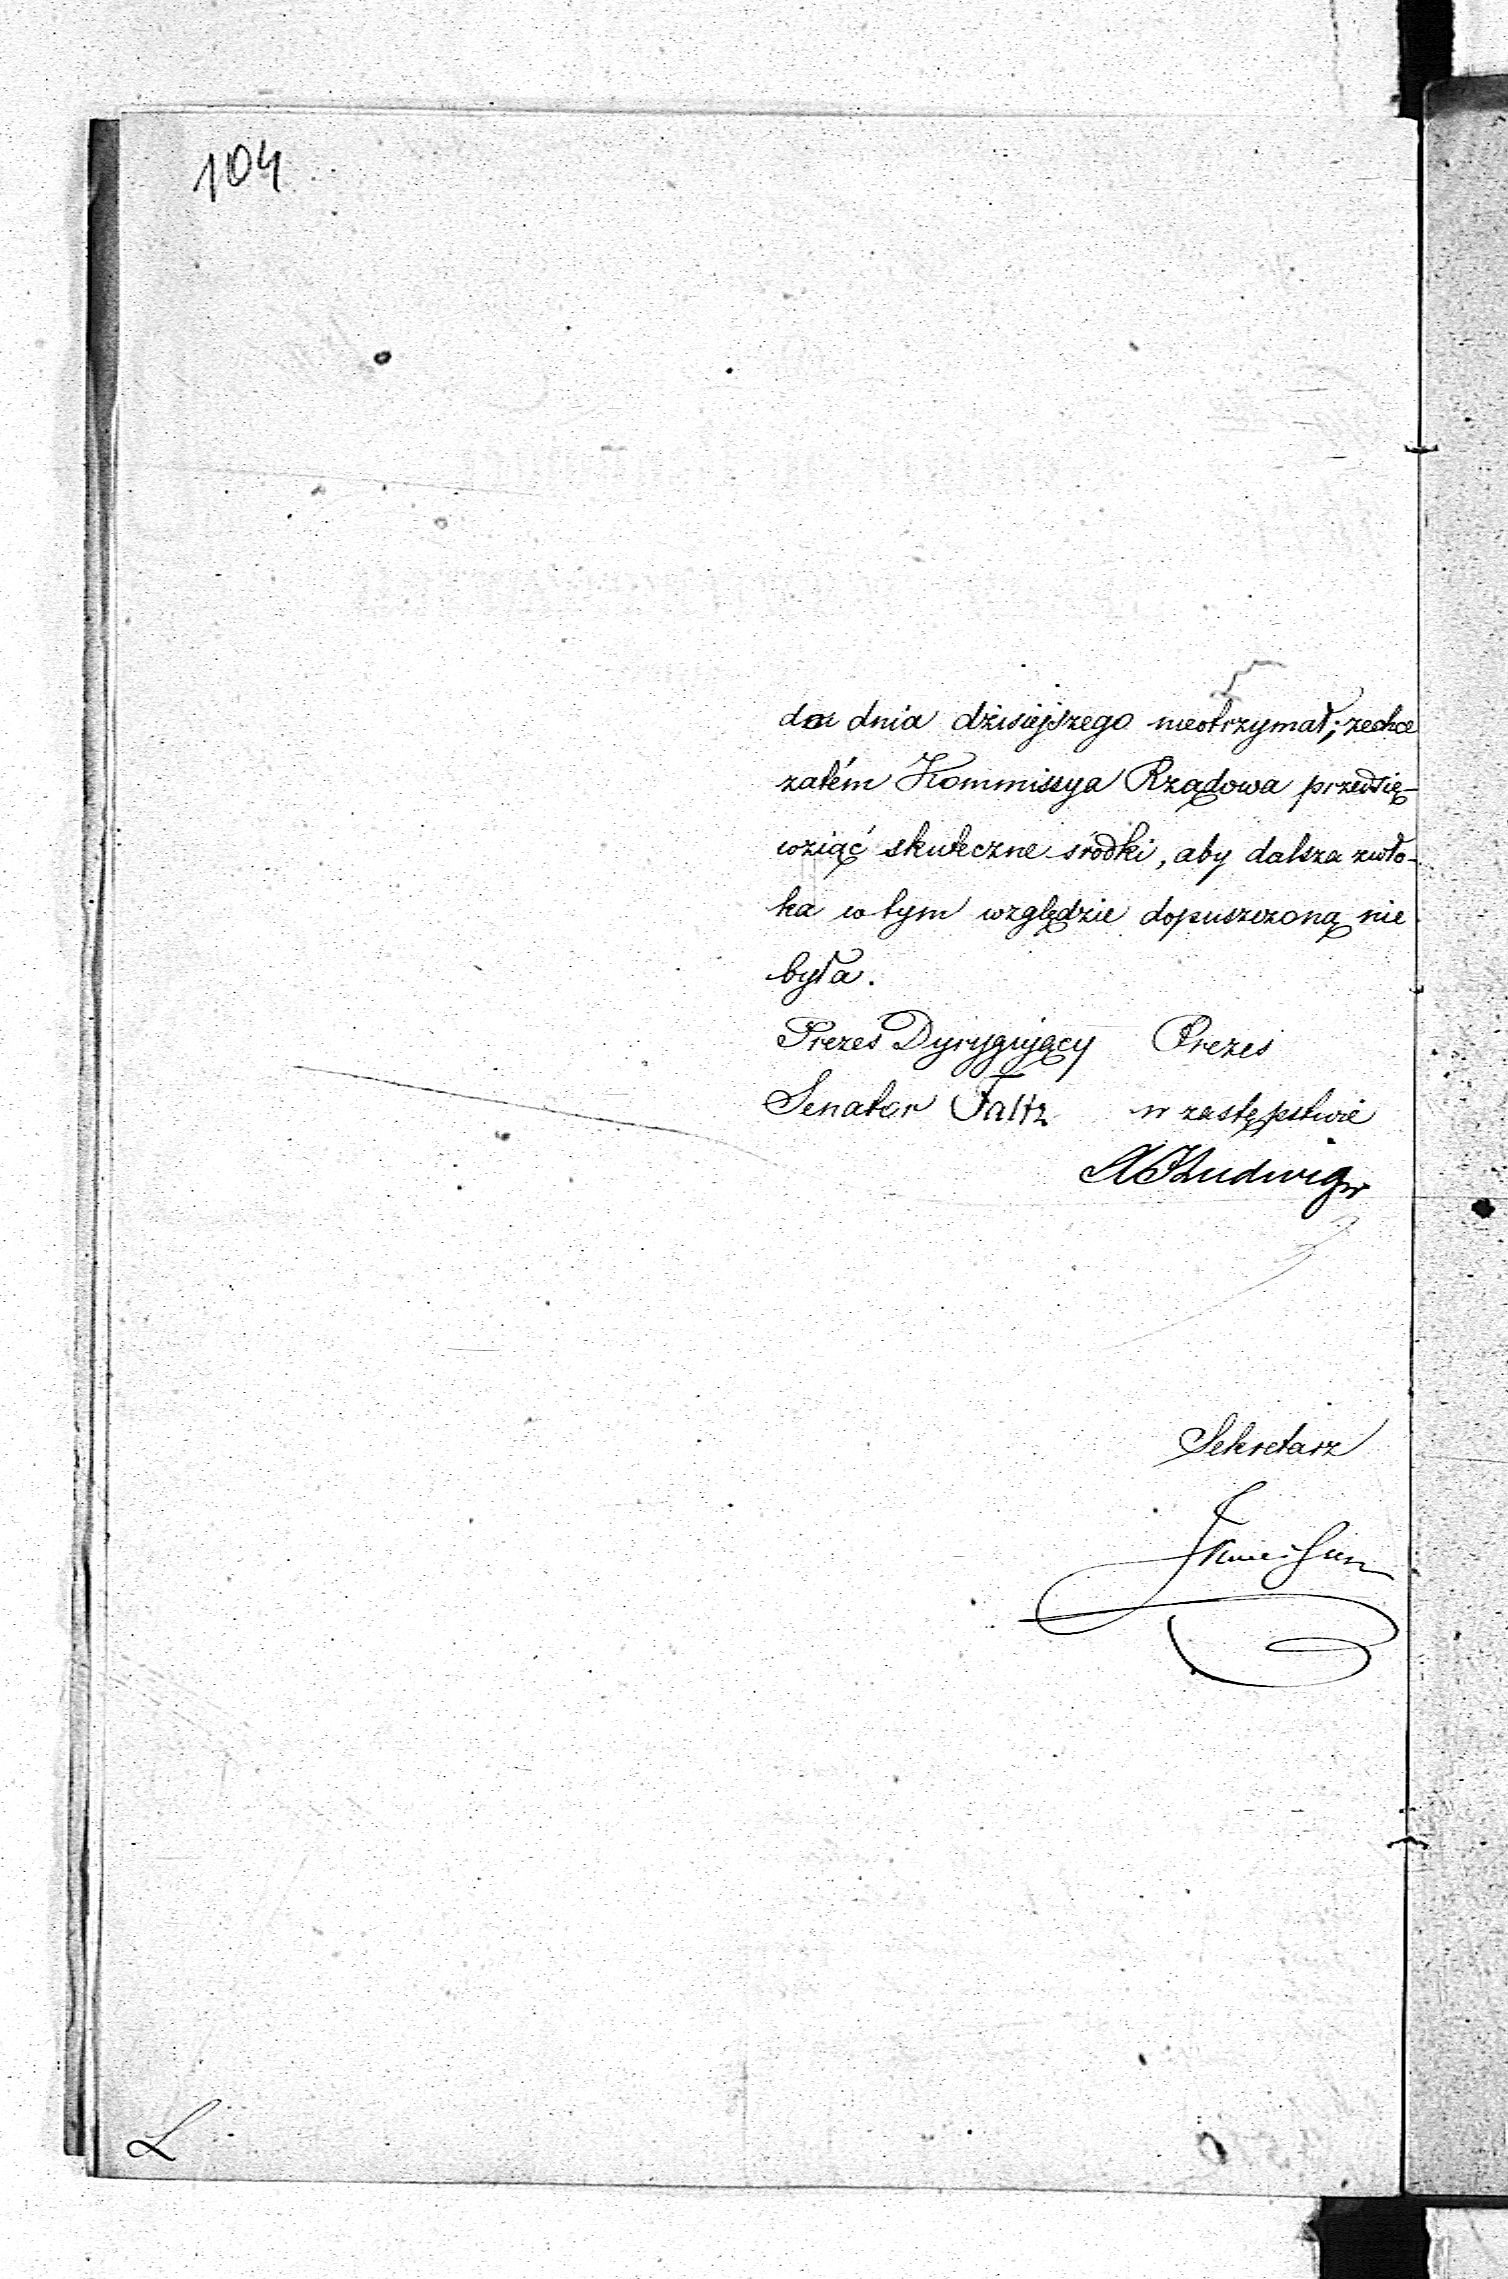 104
do dnia dzisiejszego nieotrzymał; zechce
zatém Kommissya Rządowa przedsię-
wziąć skuteczne środki, aby dalsza zwło-
ka w tym względzie dopuszczoną nie
była.
Prezes Dyrygujący Prezes
Senator Faltz w zastępstwie
Ludwig
Sekretarz
L